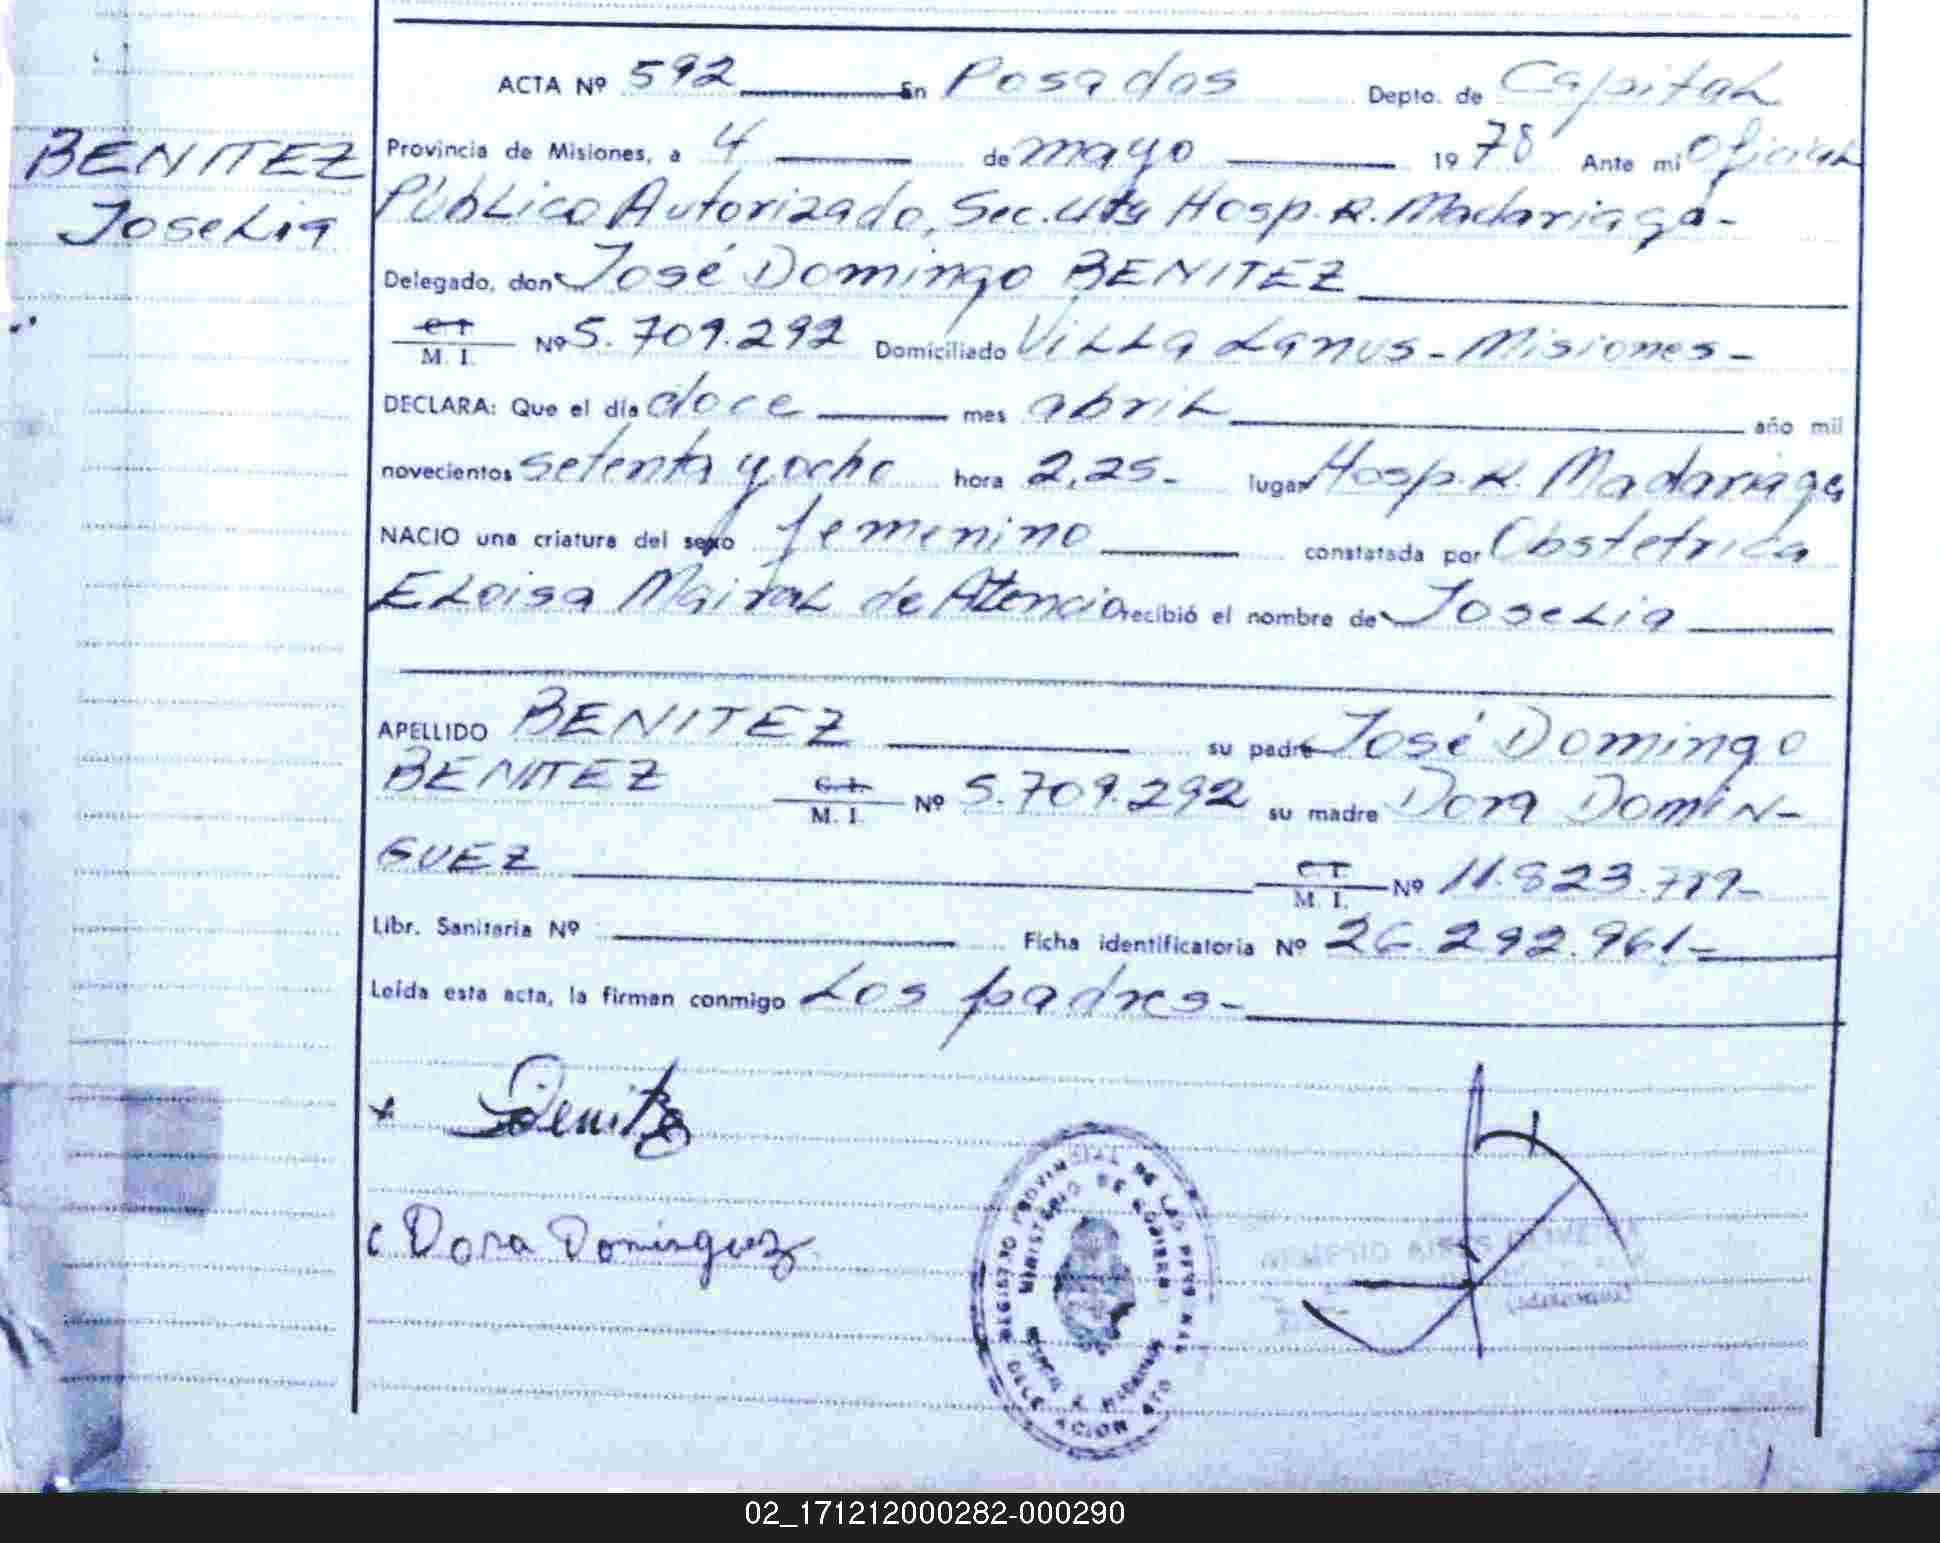 ACTA Nº 592 En Posadas Depto. de Capital
BENITEZ
Joselia
Provincia de Misiones, a 4 de mayo 1978 Ante mi Oficial
Público Autorizado, Sec. Hosp. R. Madariaga-
Delegado, don José Domingo BENITEZ
C. I. / M. I. Nº 5.709.292 Domiciliado Villa Lanus - Misiones -
DECLARA: Que el día doce mes abril año mil
novecientos setenta y ocho hora 2,25- lugar Hosp. R. Madariaga
NACIO una criatura del sexo femenino constatada por Obstetrica
Eloisa Mairal de Atencio recibió el nombre de Joselia
APELLIDO BENITEZ su padre José Domingo
BENITEZ C. I. / M. I. Nº 5.709.292 su madre Dora DOMIN-
GUEZ C. I. / M. I. Nº 11.823.
Libr. Sanitaria Nº Ficha identificatoria Nº 26.292.961-
Leída esta acta, la firman conmigo Los padres-
Benitez
Dora Dominguez
REGISTRO PROVINCIAL DE LAS PERSONAS
MINISTERIO DE GOBIERNO
02_171212000282-000290